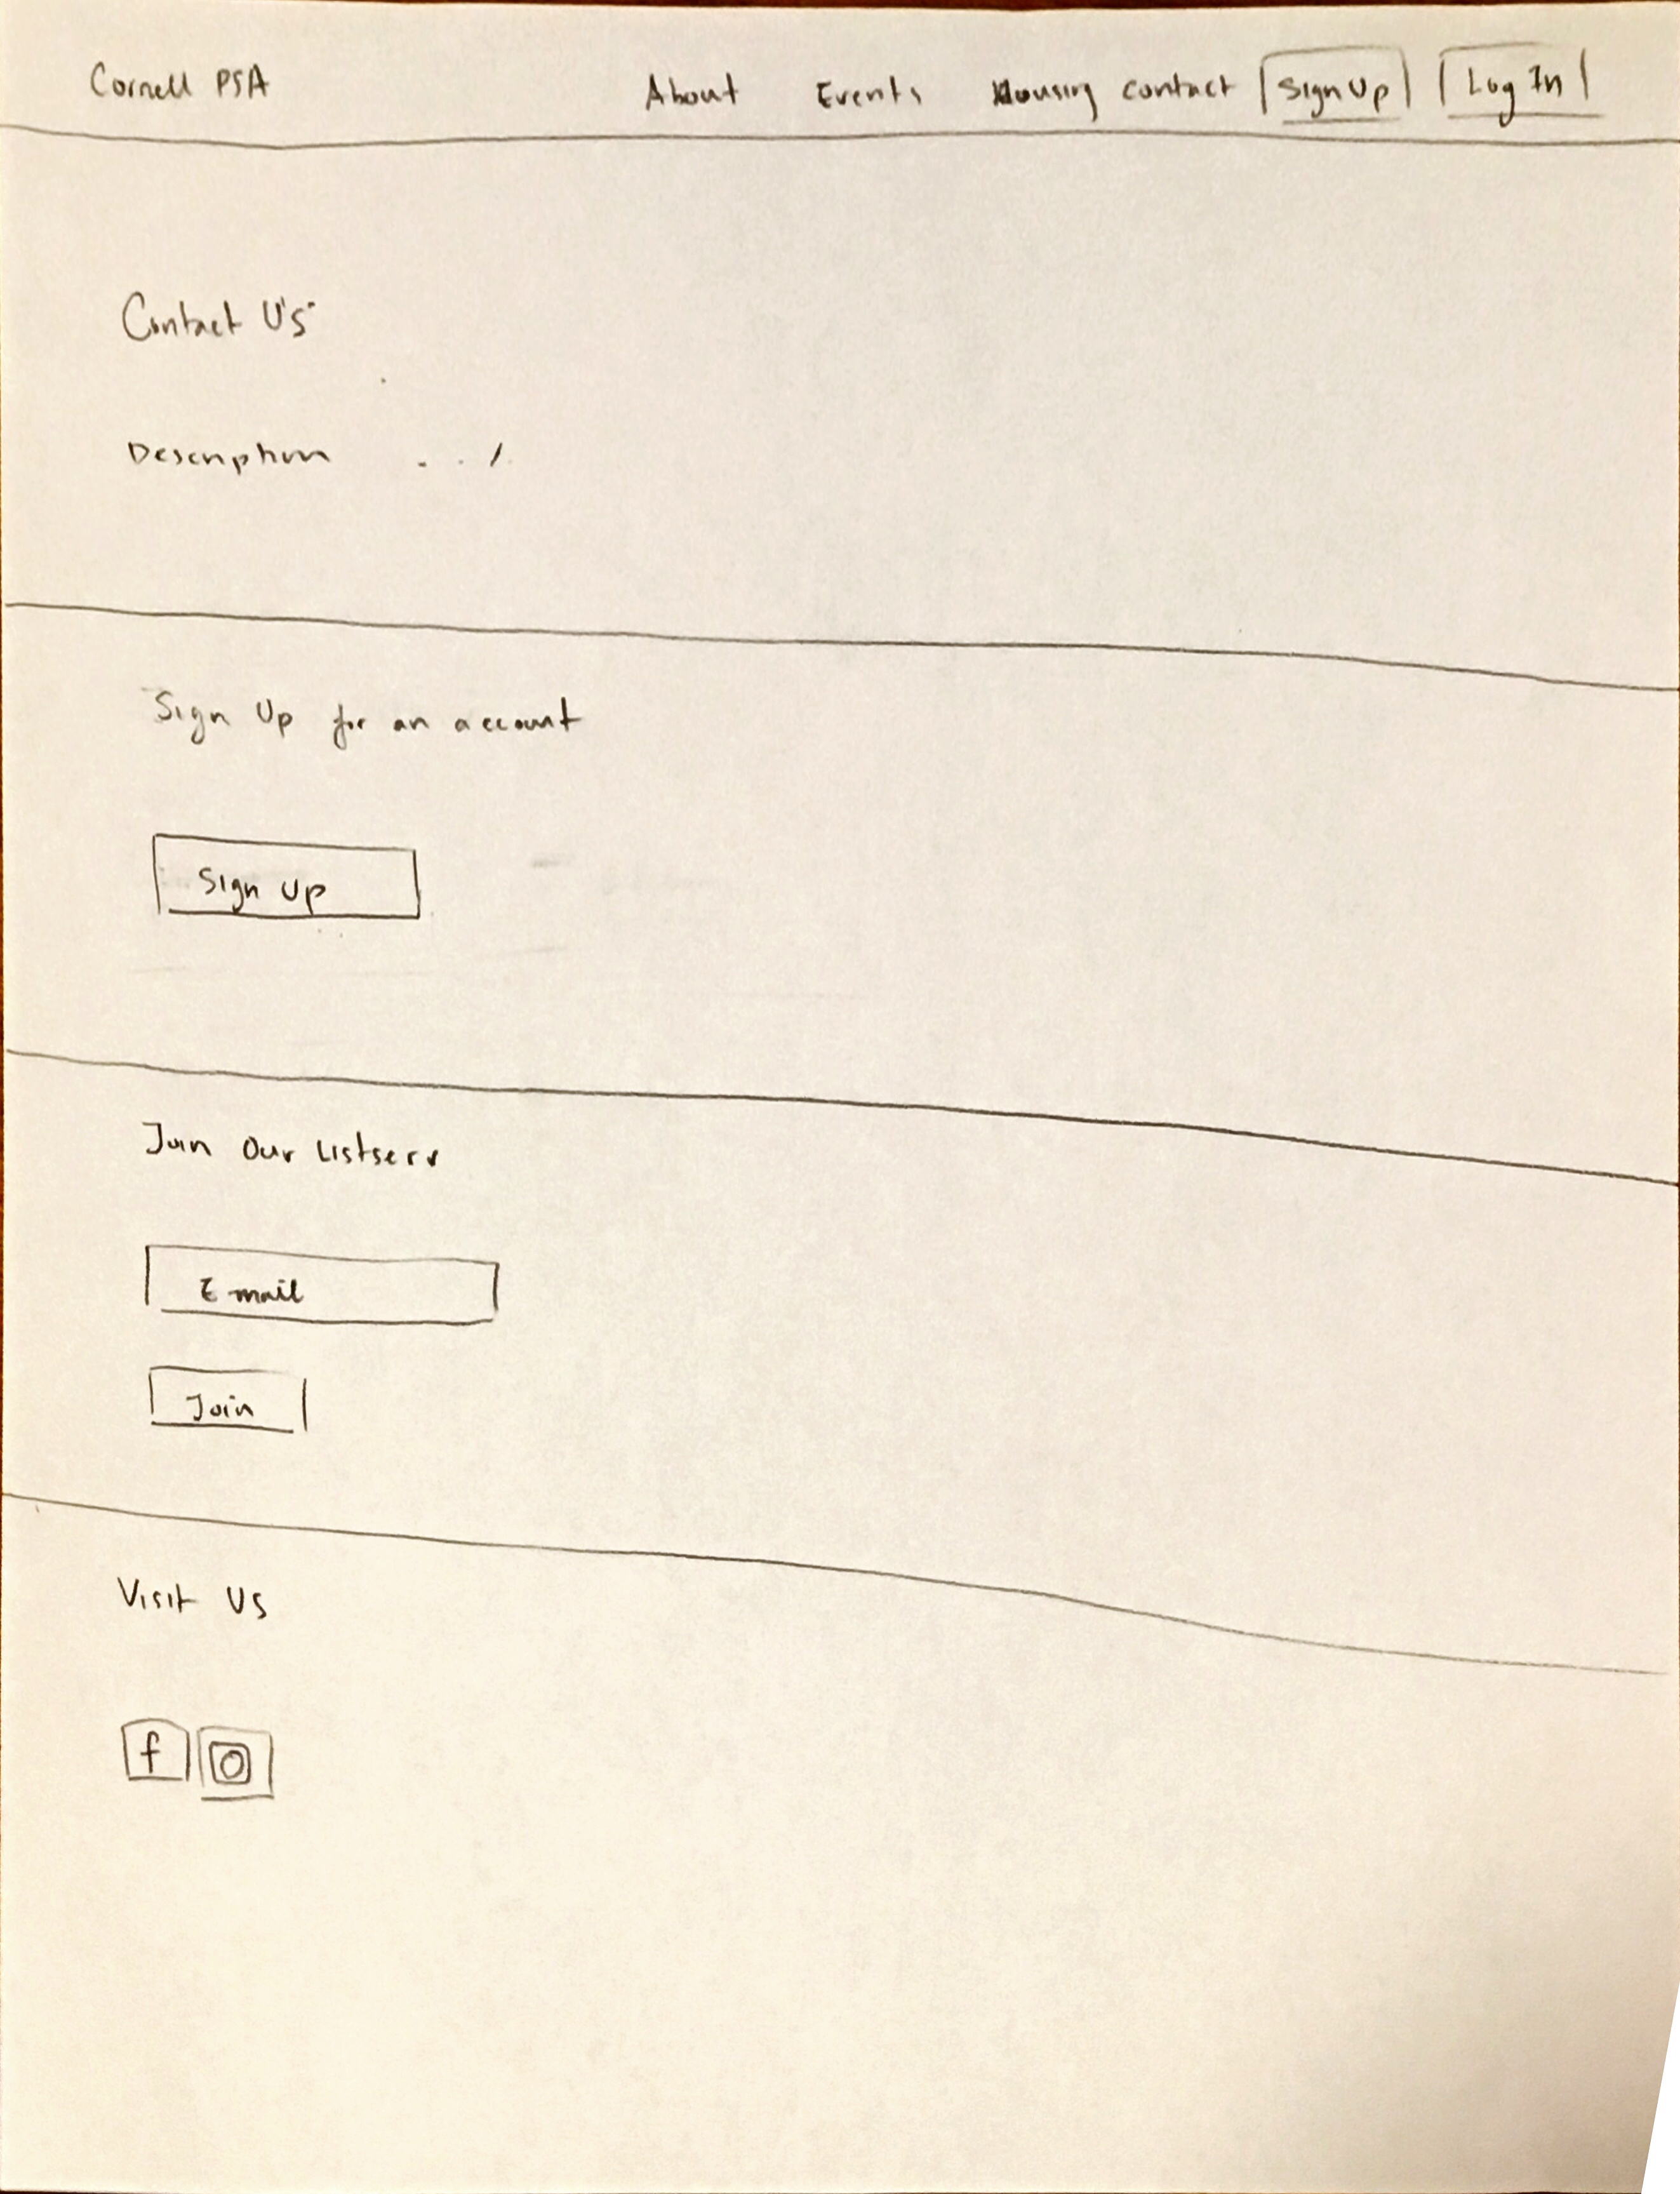 Cornell PSA About Events Housing Contact Sign Up Log In
Contact Us
Description . . .
Sign Up for an account
Sign Up
Join Our Listserv
E-mail
Join
Visit Us
f